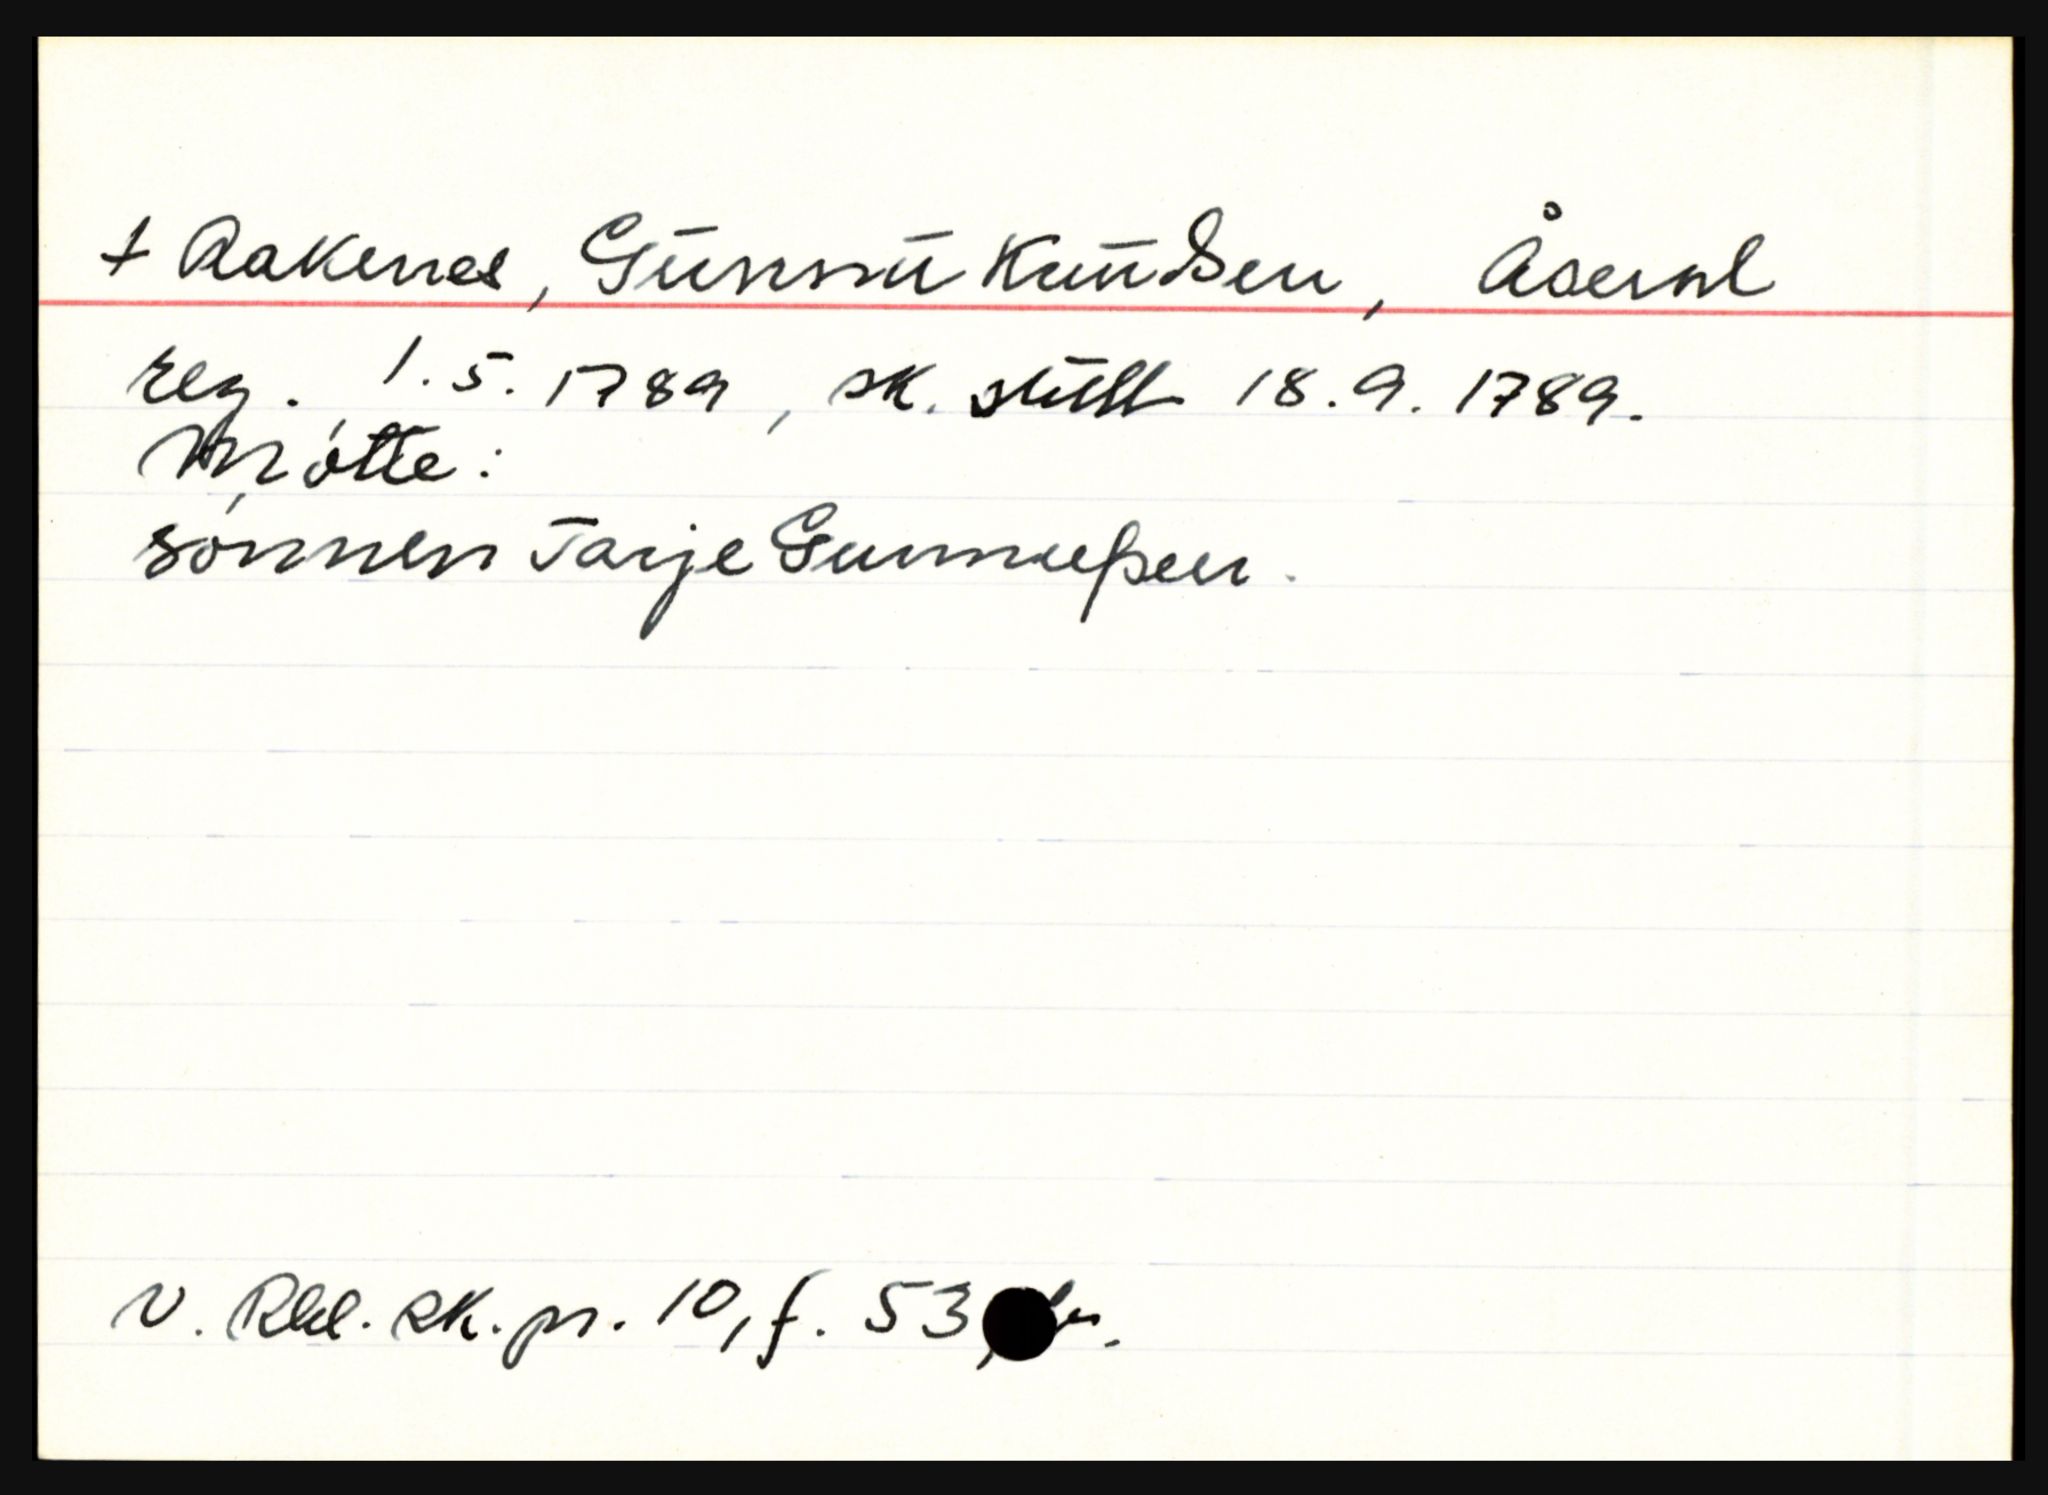 † Aakenes, Gunnu Knudsen, Åseral
reg. 1.5.1789, sk. slutt 18.9.1789.
Møtte:
sønnen Tarje Gunnuſsen.
V. Rbl. sk. pr. 10, f. 53,